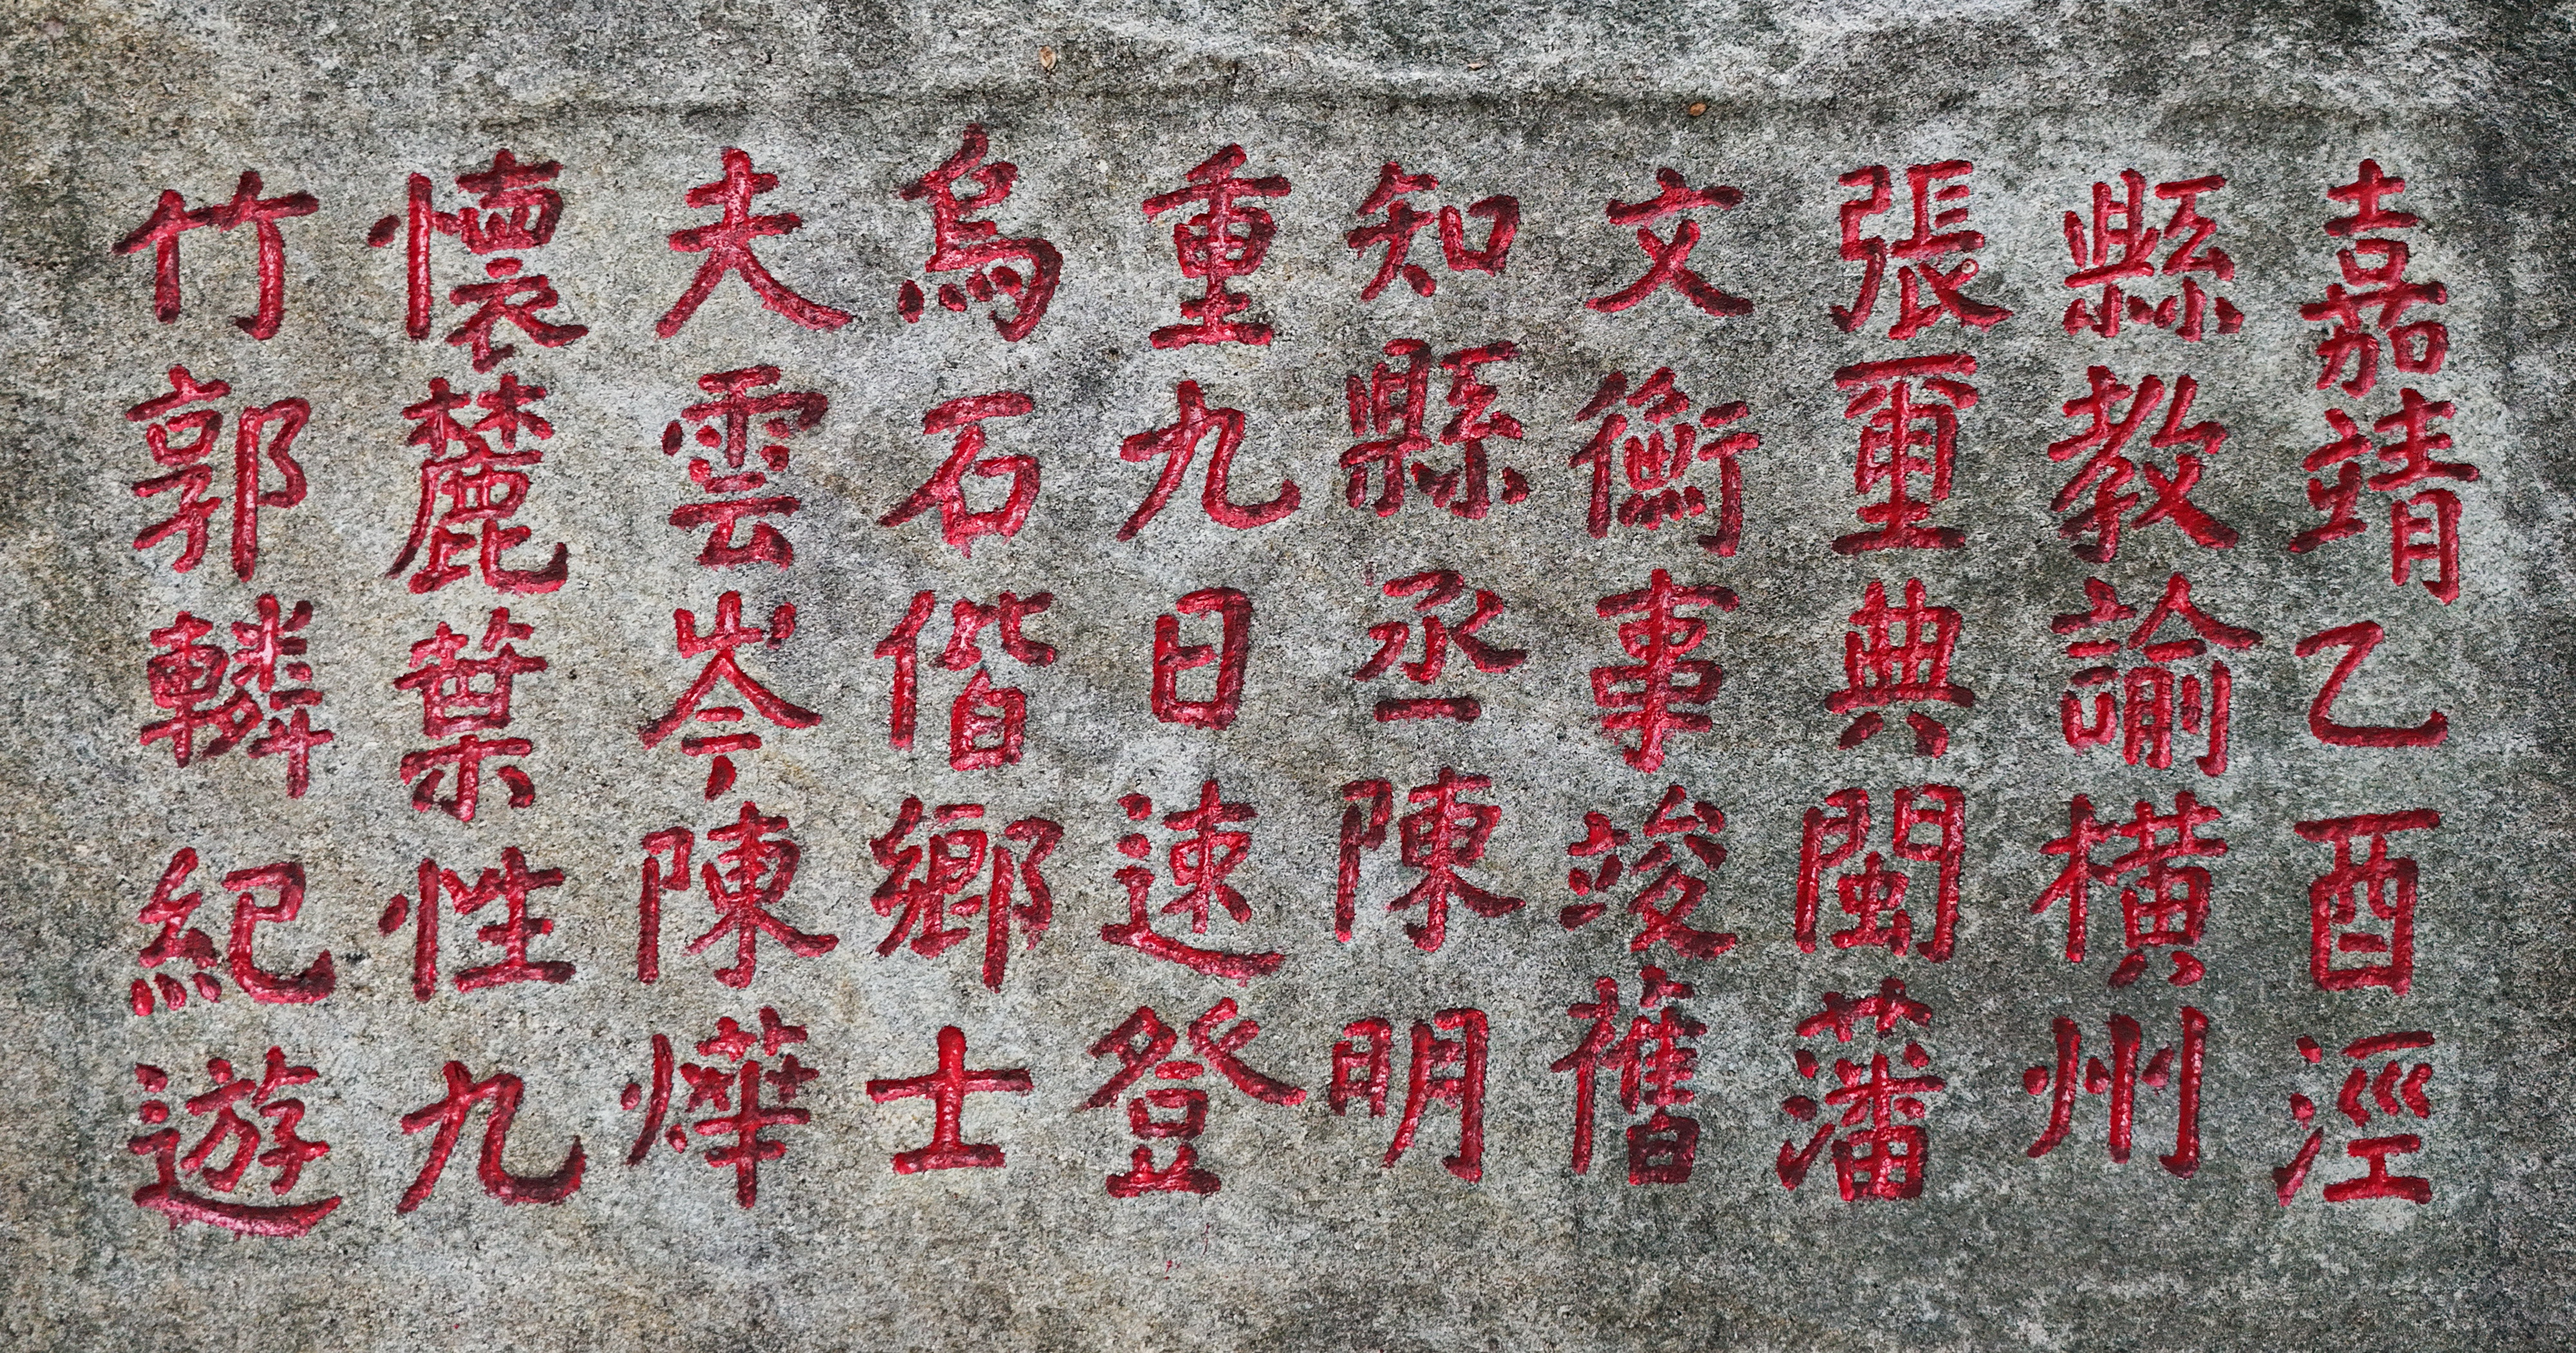 嘉靖乙酉涇
縣教諭橫州
張璽典閩藩
文衡事竣舊
知縣丞陳明
重九日速登
烏石偕鄉士
夫雲岑陳燁
懷麓葉性九
竹郭轔紀遊